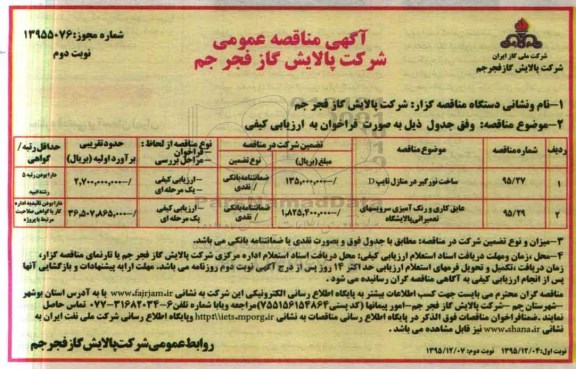 شماره مجوز: ۱۳۹۵۵۰۷۶
نوبت دوم
آگهی مناقصه عمومی
شرکت پالایش گاز فجر جم
شرکت ملی گاز ایران
شرکت پالایش گاز فجر جم
۱-نام ونشانی دستگاه مناقصه گزار: شرکت پالایش گاز فجر جم
۲-موضوع مناقصه: وفق جدول ذیل به صورت فراخوان به ارزیابی کیفی
ردیف شماره مناقصه موضوع مناقصه تضمین شرکت در مناقصه مبلغ (ریال) نوع تضمین نوع مناقصه از لحاظ: -فراخوان -مراحل بررسی حدود تقریبی برآورد اولیه (ریال) حداقل رتبه / گواهی
۱ ۹۵/۲۷ ساخت نورگیر در منازل تایپ D ۱۳۵,۰۰۰,۰۰۰/- ضمانتنامه بانکی / نقدی -ارزیابی کیفی -یک مرحله ای ۲,۷۰۰,۰۰۰,۰۰۰/- دارا بودن رتبه ۵ رشته ابنیه
۲ ۹۵/۲۹ عایق کاری و رنگ آمیزی سرویسهای تعمیراتی پالایشگاه ۱,۸۲۵,۴۰۰,۰۰۰/- ضمانتنامه بانکی / نقدی -ارزیابی کیفی یک مرحله ای ۳۶,۵۰۷,۸۶۵,۰۰۰/- دارا بودن تاییدیه اداره کار یا گواهی صلاحیت مرتبط با پروژه
۳-میزان و نوع تضمین شرکت در مناقصه: مطابق با جدول فوق و بصورت نقدی یا ضمانتنامه بانکی می باشد.
۴-محل ،زمان ومهلت دریافت اسناد استعلام ارزیابی کیفی: محل دریافت اسناد استعلام اداره مرکزی شرکت پالایش گاز فجر جم یا تارنمای مناقصه گزار،
زمان دریافت ،تکمیل و تحویل فرمهای استعلام ارزیابی حد اکثر ۱۴ روز پس از درج آگهی نوبت دوم روزنامه می باشد. مهلت ارایه پیشنهادات و بازگشایی آنها
پس از انجام ارزیابی کیفی به آگاهی مناقصه گران رسانیده می شود .
مناقصه گران محترم می بایست جهت کسب اطلاعات بیشتر به پایگاه اطلاع رسانی الکترونیکی این شرکت به نشانی www.fajrjam.ir یا به آدرس استان بوشهر
-شهرستان جم -شرکت پالایش گاز فجر جم-امور پیمانها (کد پستی ۷۵۵۱۵۶۱۵۴۸۶۴)مراجعه ویابا شماره تلفن ۶-۳۱۶۸۲۰۳۴-۰۷۷ تماس حاصل
نمایند .ضمنافراخوان مناقصات فوق الذکر در پایگاه اطلاع رسانی مناقصات به نشانی http\\iets.mporg.ir وپایگاه اطلاع رسانی شرکت ملی نفت ایران به
نشانی www.shana.ir نیز قابل مشاهده می باشد .
روابط عمومی شرکت پالایش گاز فجر جم
نوبت اول: ۱۳۹۵/۱۲/۰۴ نوبت دوم: ۱۳۹۵/۱۲/۰۷